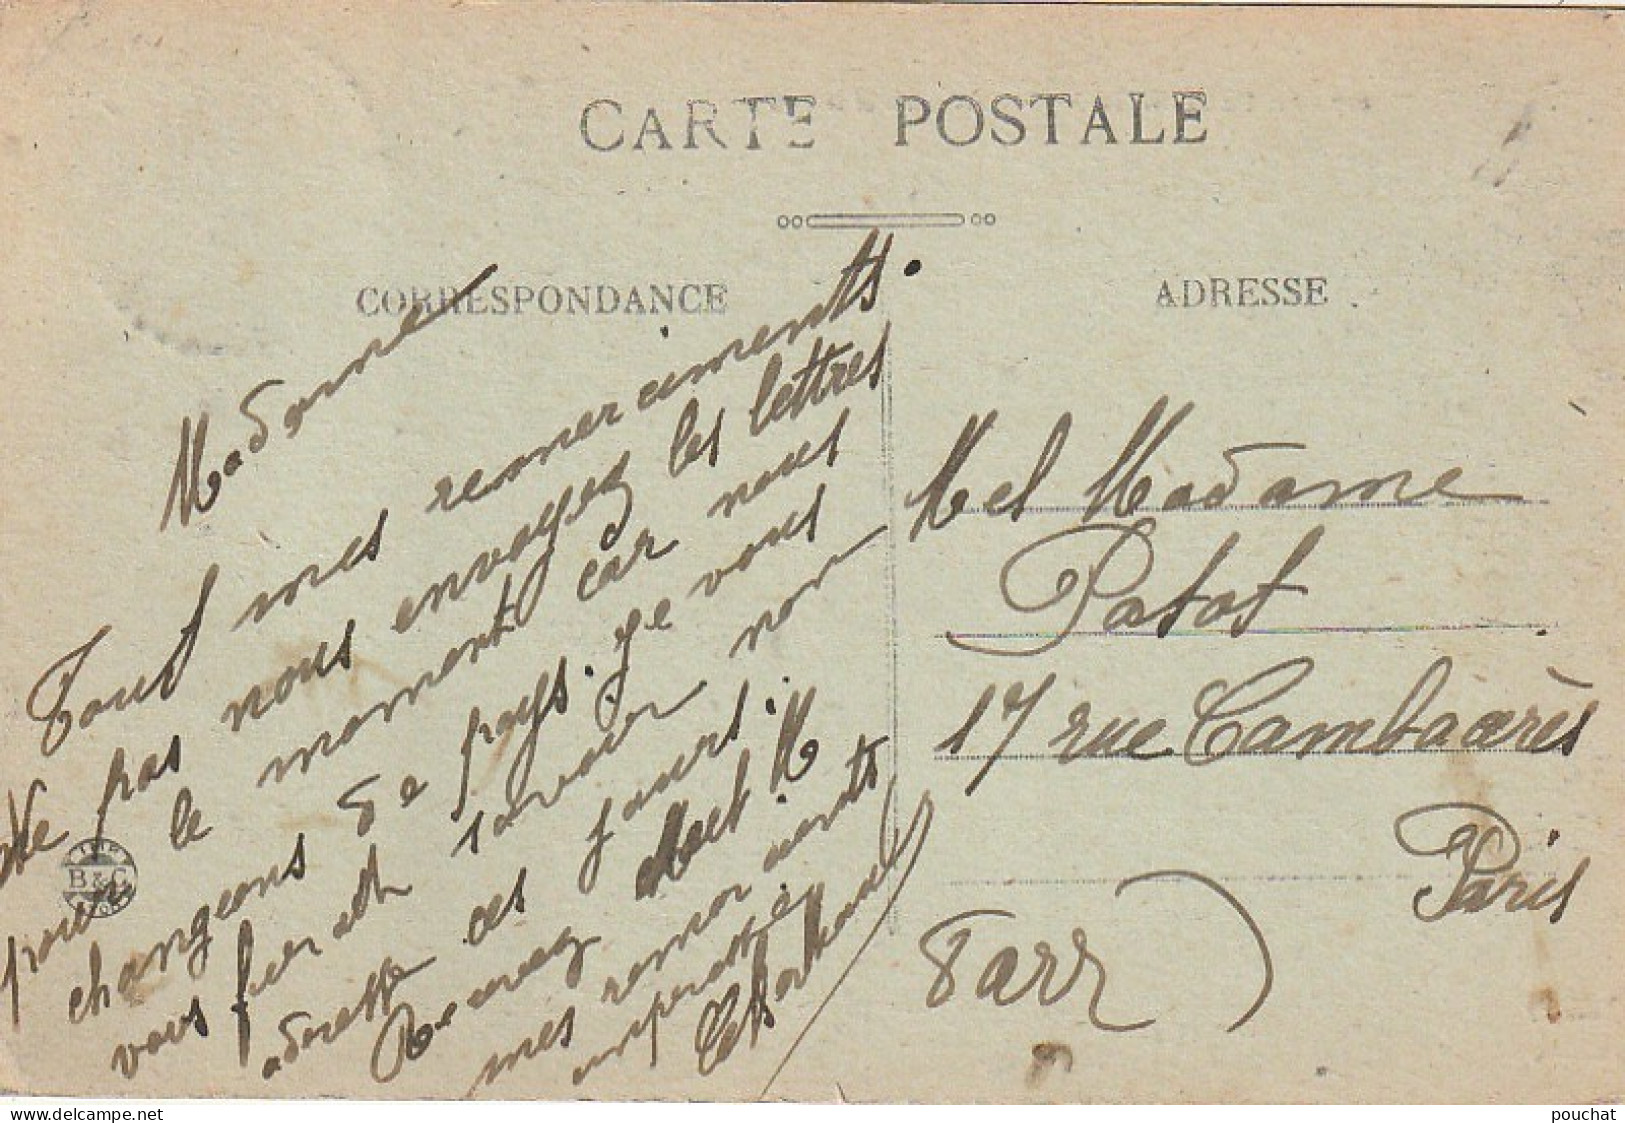 CARTE POSTALE
CORRESPONDANCE
ADRESSE
Madame
Tout mes remerciments.
Ne pas nous envoyez les lettres
pour le moment car nous
changeons de pays. Je vous
vous ferait savoir nor
adresse ces jours.
Recevez M
mes
Mel Madame
Patat
17 rue Cambacérès
Paris
B & C
delcampe.net
pouchat